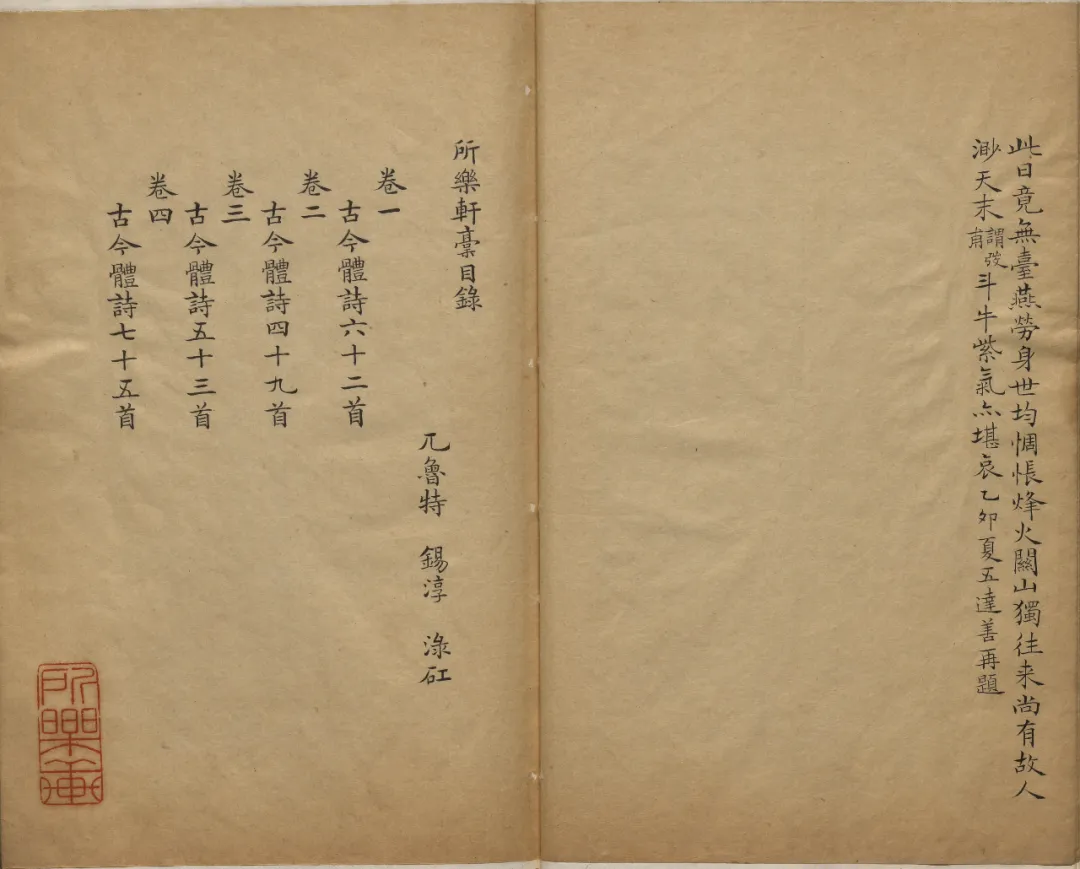 此日竟無臺燕勞身世均惆悵烽火關山獨往来尚有故人
渺天末謂弢甫斗牛紫氣亦堪哀乙卯夏五達善再題
所樂軒稾目錄
兀魯特 錫淳 淥矼
卷一
古今體詩六十二首
卷二
古今體詩四十九首
卷三
古今體詩五十三首
卷四
古今體詩七十五首
所樂軒